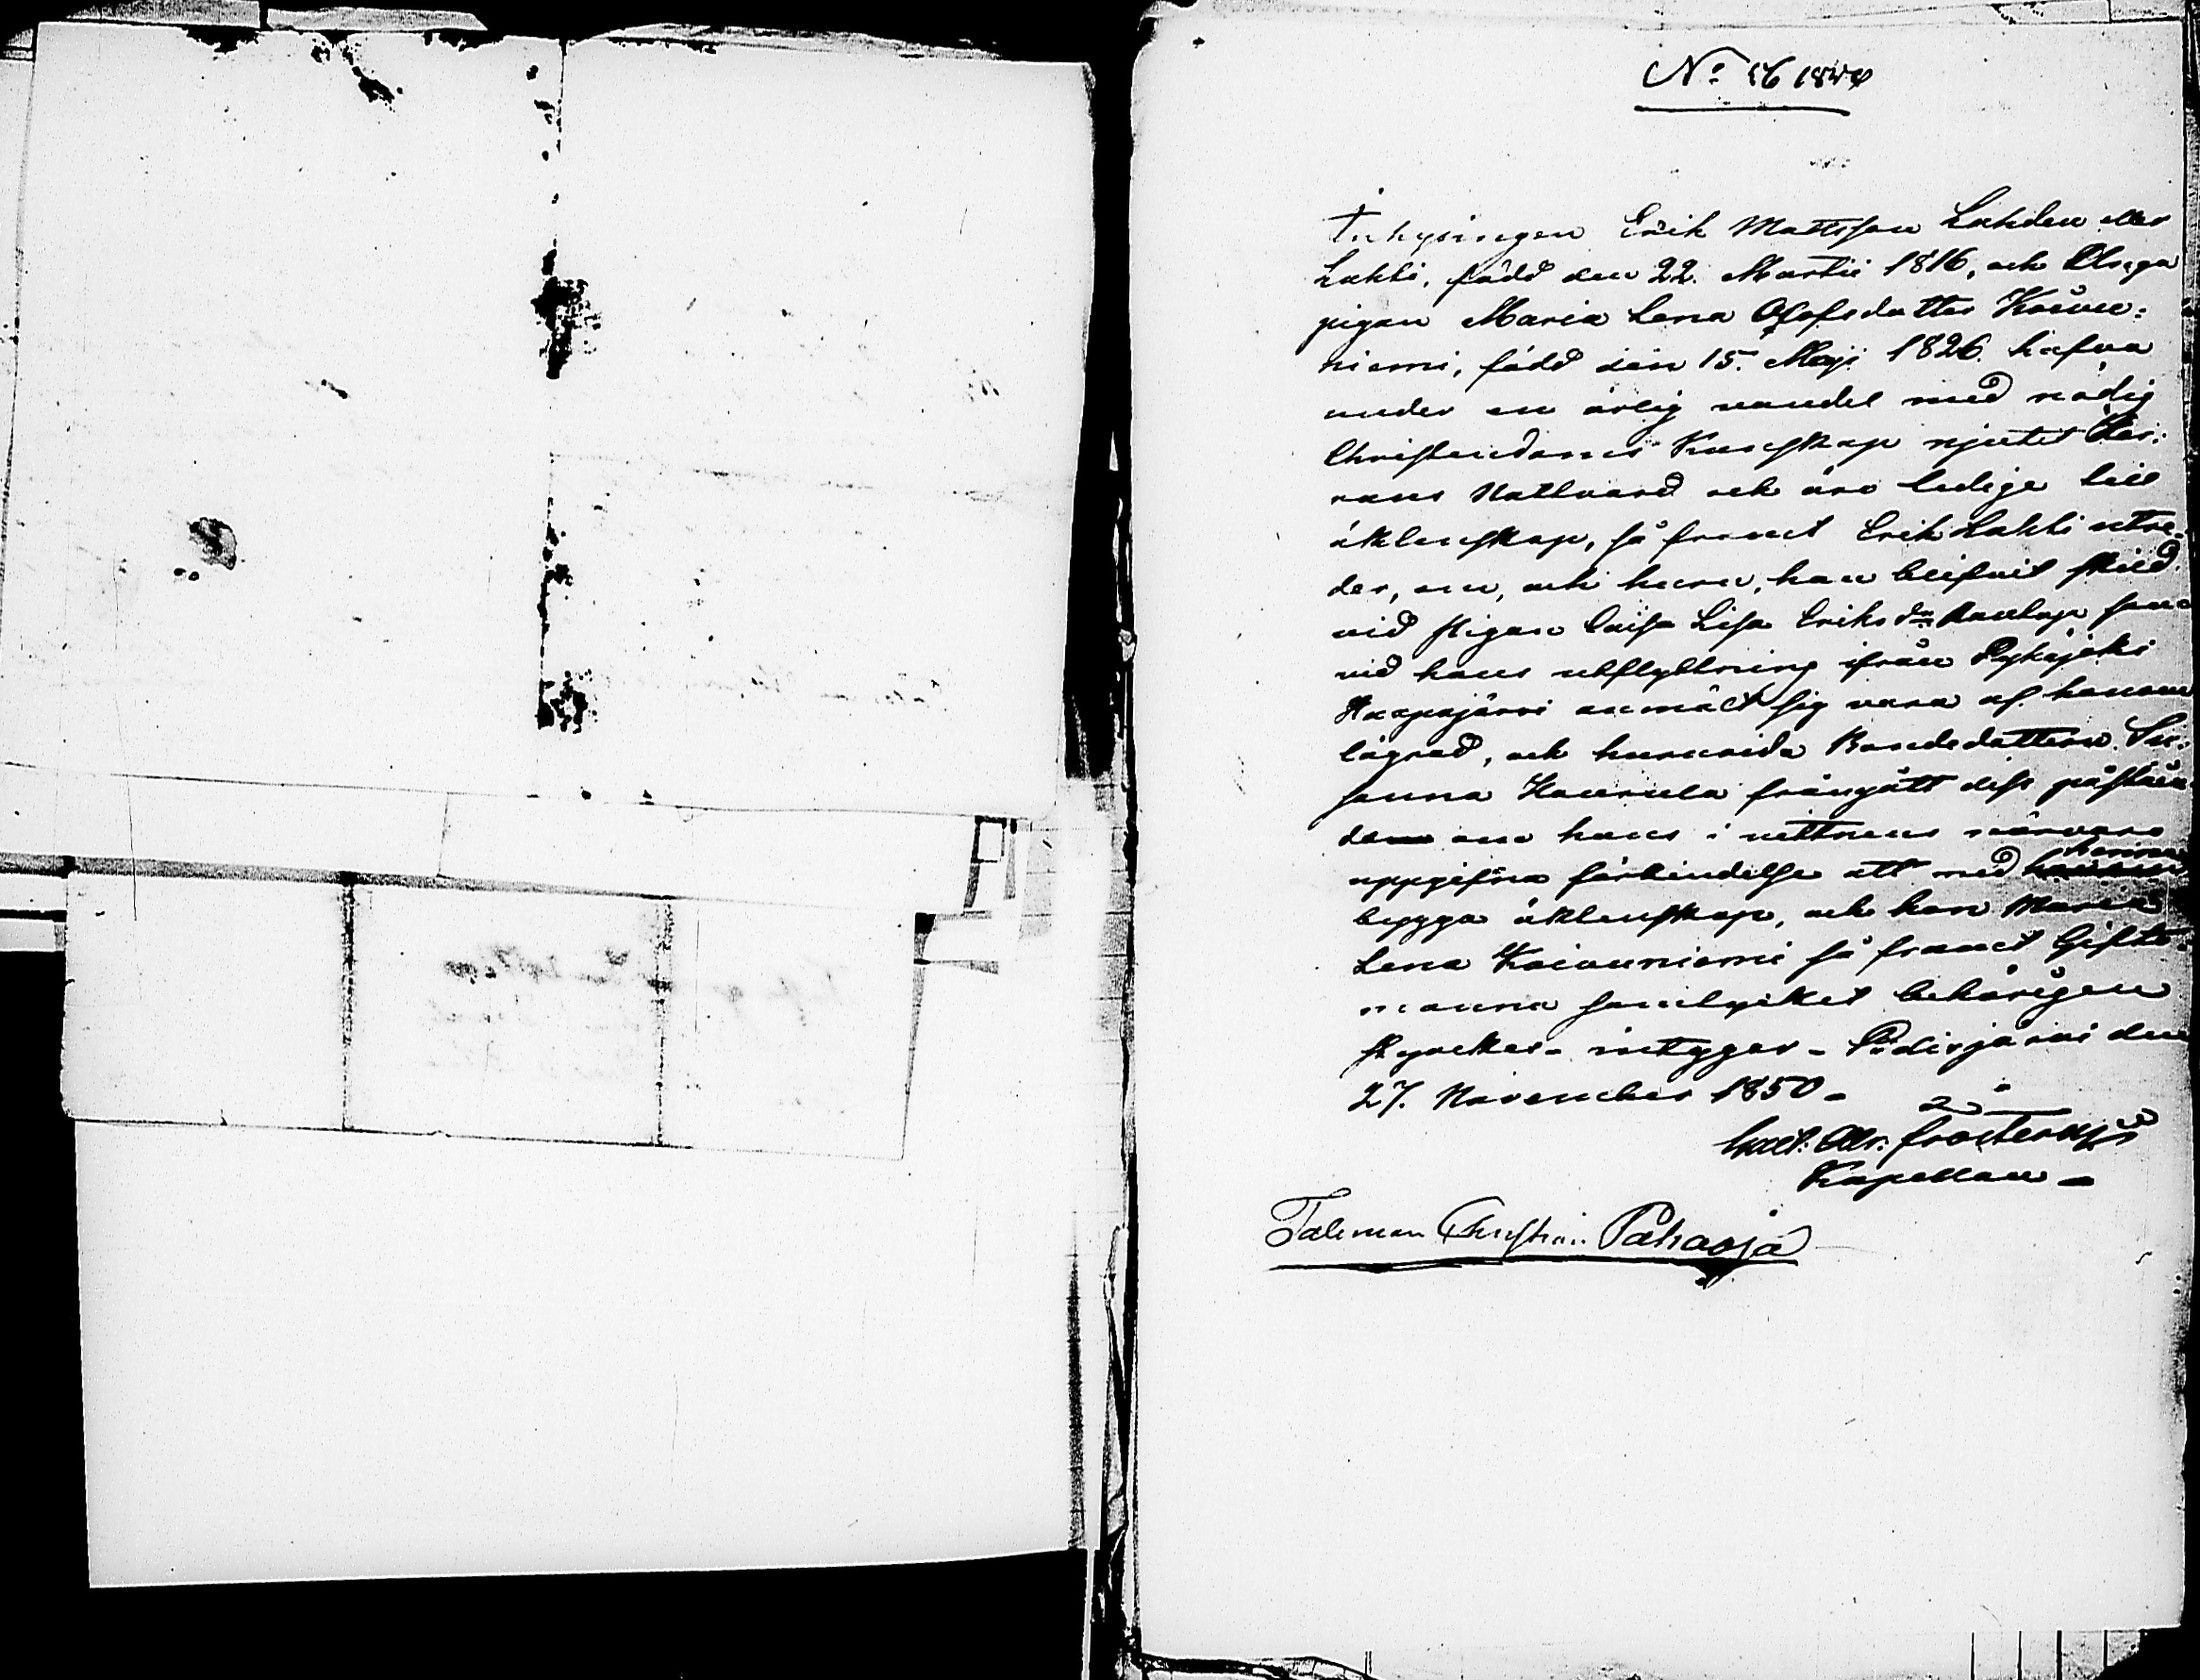 No 56 18
Inhysingen Erik Mattsson Lahden eller
Lahti, född den 22. Martii 1816, och
pigan Maria Lena Olofsdotter Koivu-
niemi, född den 15. Maji 1826. hafva
under en ärlig vandel med nödig
Christendoms Kunskap njutit Her-
rans Nattvard och äro ledige till
äktenskap, så framt Erik Lahti utre-
der, om, och huru, han blifvit skild
vid pigan Caisa Lisa Eriksdr som
vid hans utflyttning ifrån Pyhäjoki
Haapajärvi anmält sig vara af honom
lägrad, och huruvida Bondedottern Su-
sanna Haurula frångått dess påståen-
de om hans i vittnens närvaro
uppgifna förbindelse att med henne
bygga äktenskap, och hon Maria
Lena Koivuniemi så framt Gifto-
manna samtycket behörigen
styrkes - intygar - Pudisjärvi den
27. November 1850 -
Frosterus
Kapellan -
Taleman Christian Pahaoja